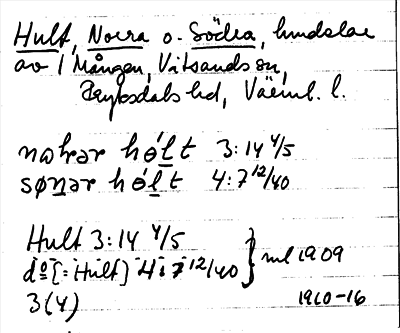 Hult, Norra o. Södra, hundelar
av / Mången, Vitsands sn,
Fryksdals hd, Värml. l.
nωrər hólt 3:14 4/5
sønər hólt 4:7 12/40
Hult 3:14 4/5
do [: Hult] 4:7 12/40 } ml 1909
3(4) 1910-16